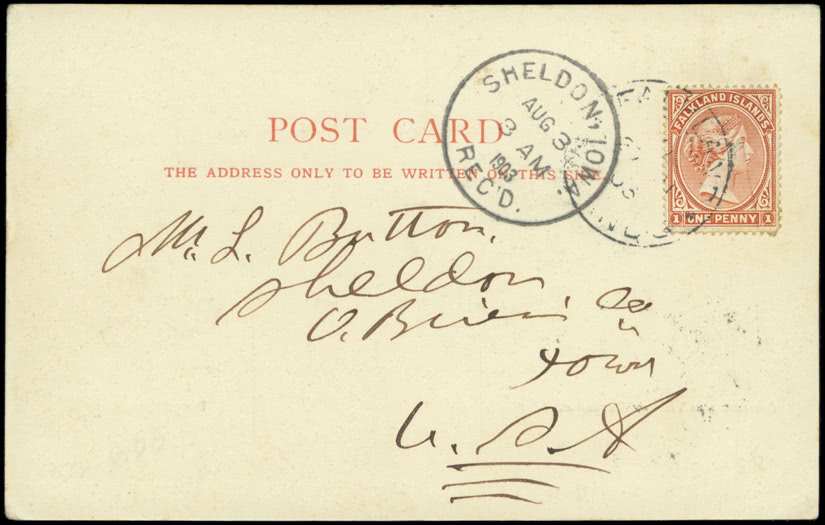 POST CARD
THE ADDRESS ONLY TO BE WRITTEN ON THIS SIDE
SHELDON, IOWA.
AUG 3
3 AM
1903
REC'D.
FALKLAND ISLANDS
1 ONE PENNY 1
Mr. L. Button,
Sheldon
O.Brien Co
Iowa
U.S.A